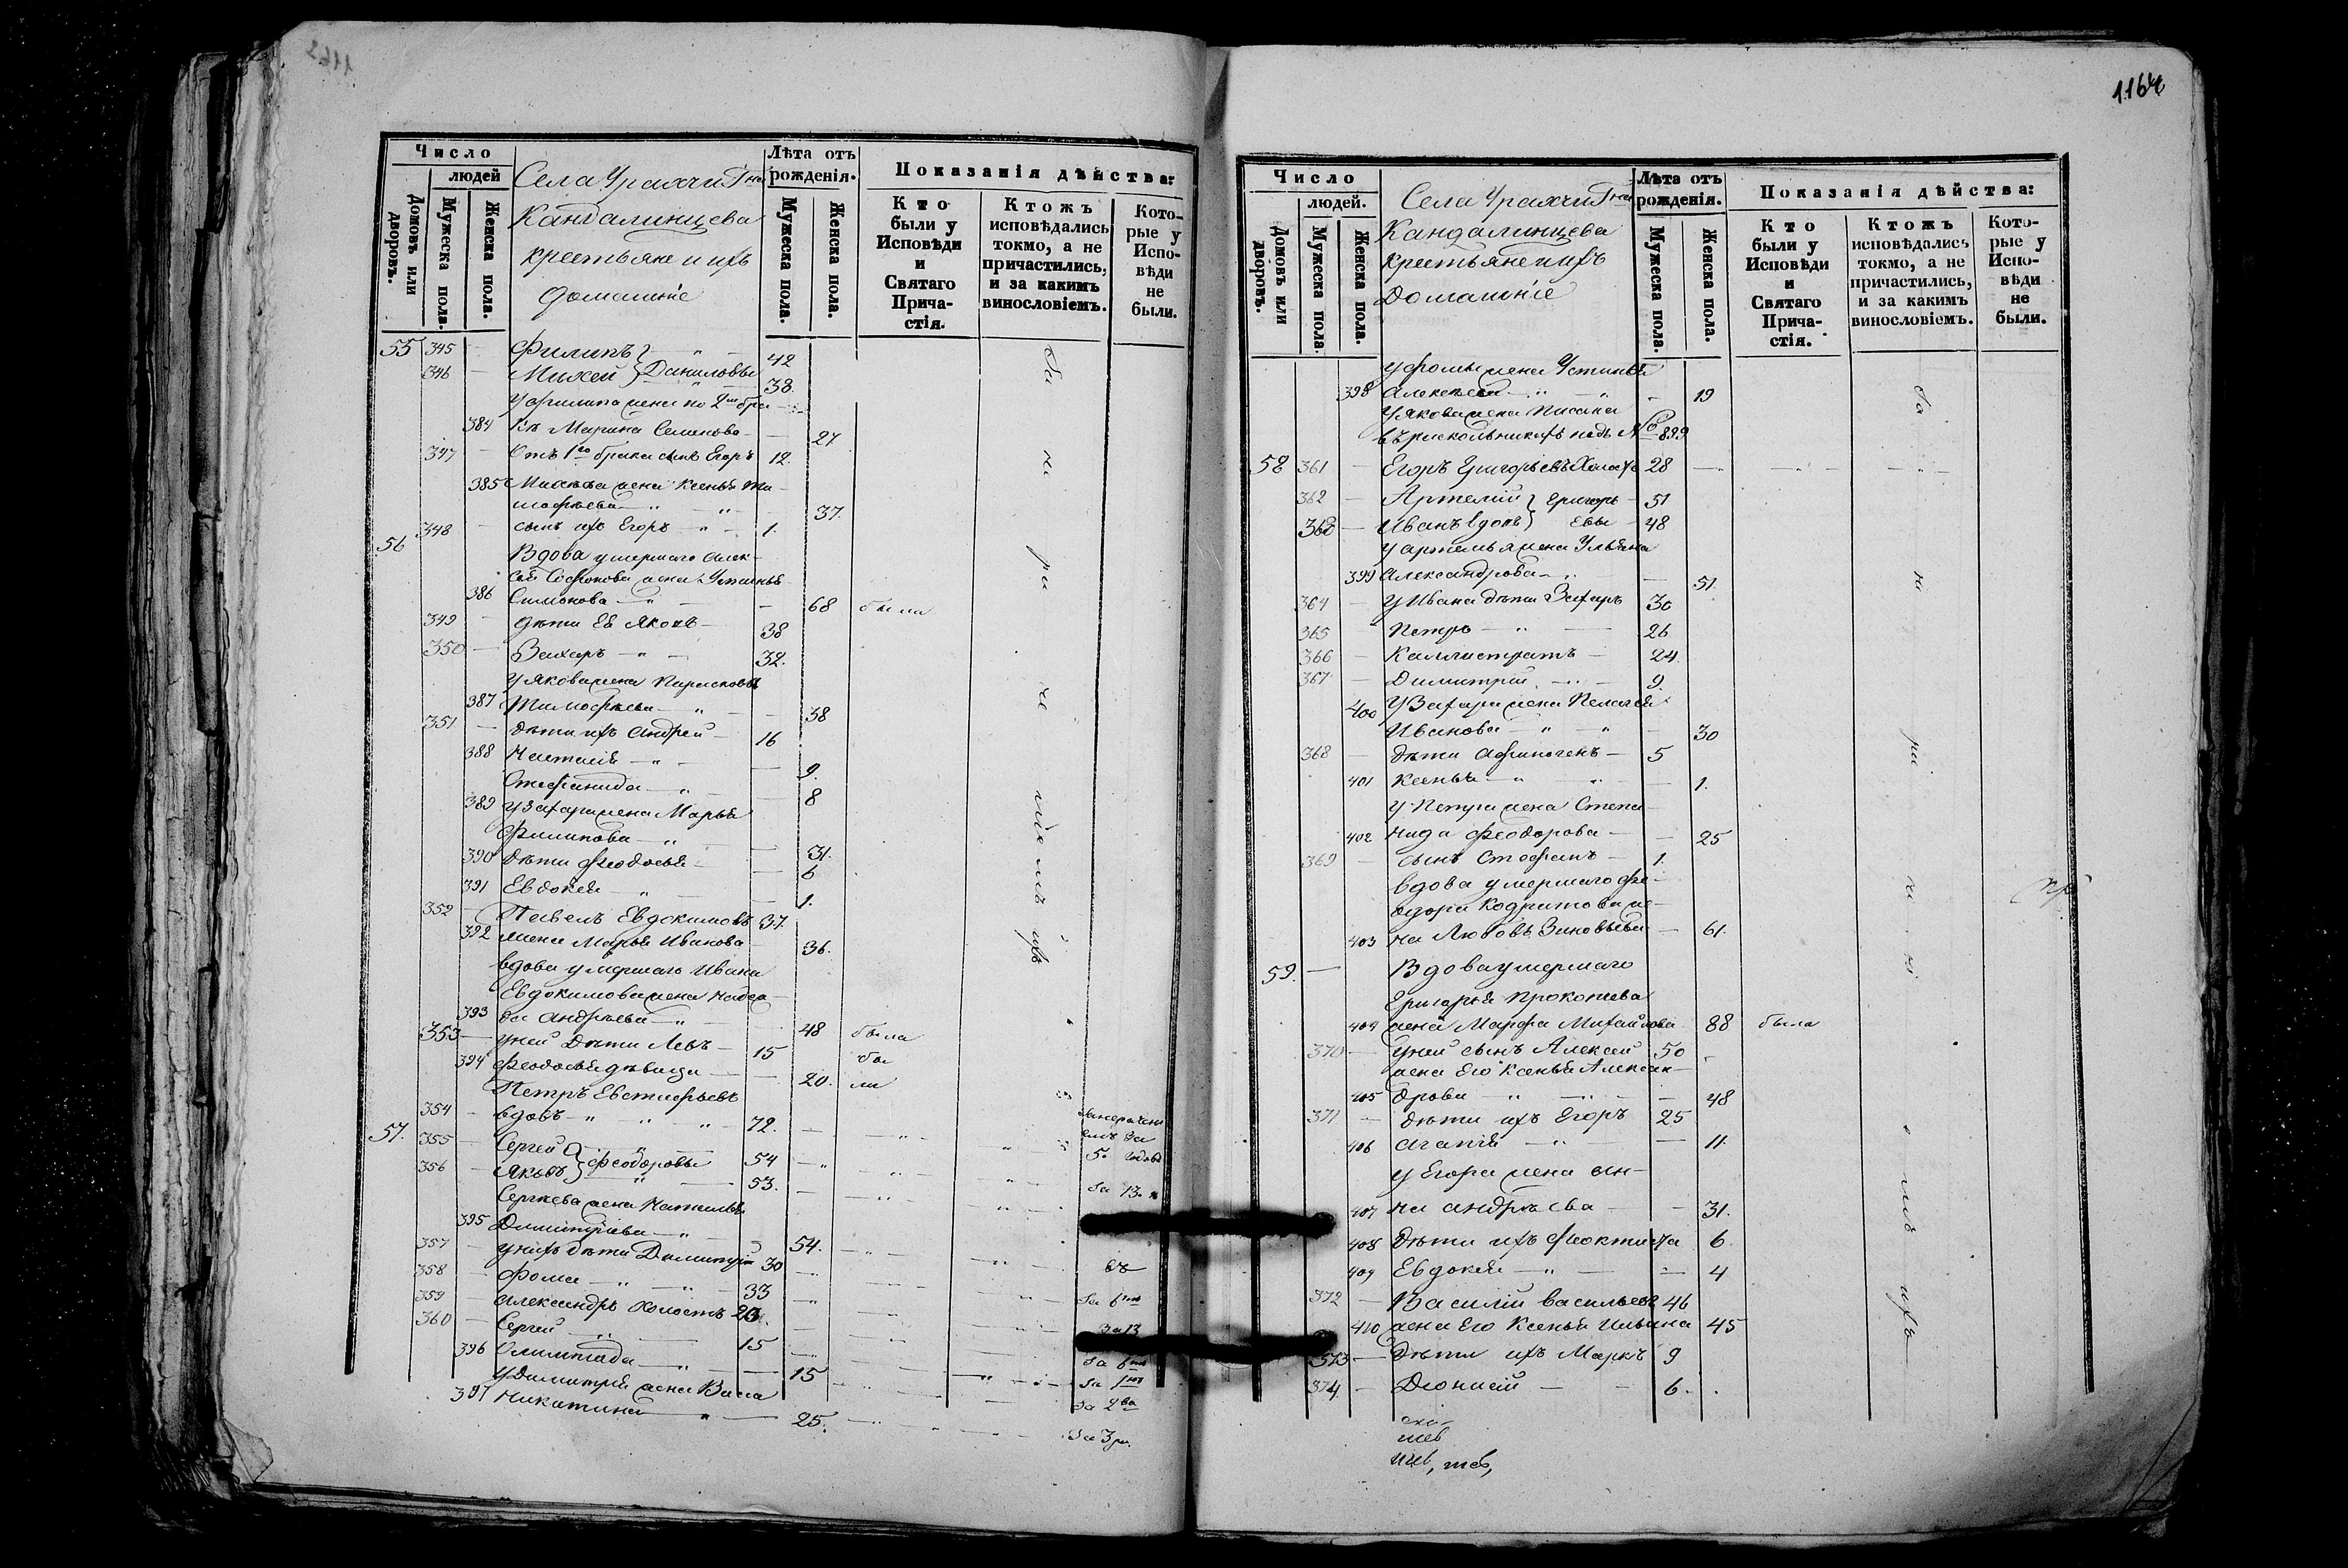 Число
людей
Домовъ или дворовъ.
Мужеска пола.
Женска пола.
Села Урахчи Гна
Кандалинцева
крестьяне и ихъ
домашніе
Лѣта отъ рожденія.
Мужеска пола.
Женска пола.
Показанія дѣйства:
Кто были у Исповѣди и Святаго Причастія.
Ктожъ исповѣдались токмо, а не причастились, и за какимъ винословіемъ.
Которые у Исповѣди не были.
55 345 – Филипъ } – " – 42
346 – Михей } Даниловы 38.
у Филипа жена по 2му бра-
384 къ Марина Семенова – 27
347 – Отъ 1го брака сынъ Егоръ 12.
385 Михѣя жена Ксенья Ти-
мофѣева – " – " – 37.
348 – сынъ ихъ Егоръ – " – 1.
56 Вдова умершаго Алек-
сѣя Софонова жена Устинья
386 Симонова – " – 68 была
349 – дѣти Ея Яковъ – 38
350 – Захаръ – " – 32.
у Якова жена Парасковья
387 Тимофѣева – " – 38
351 – дѣти ихъ Андрей – 16
388 Настасія – " – 9.
Стефанида – " – 8
389 у Захара жена Марья
Филипова – " – 31.
390 дѣти Феодосья – 6
391 Евдокея – " – 1.
352 – Павелъ Евдокимовъ 37.
392 жена Марья Иванова – 36.
вдова умершаго Ивана
Евдокимова жена Надеж-
393 да Андрѣева – " – 48 была
353 – у ней дѣти Левъ – 15 бы
394 Феодосья дѣвица – 20. ли
Петръ Евстифьевъ
354 – вдовъ – " " " – 72.
57. 355 – Сергей } – " – 54
356 – Яковъ } Феодоровы 53. за 13. "
Сергѣева жена Наталья
395 Димитріева – " – 54.
357 – у нихъ дѣти Димитрій 30
358 – Фома – " – " – 33 за 6ть
359 – Александръ Холостъ 23. за 13
360 – Сергей – " – 15 за 6ть
396 Олимпіада – " – 15
у Димитрія жена Васа за 2ва
397 Никитина – " – 25. за 3ри.
за не ра че ні емъ ихъ
1164
Число
людей.
Домовъ или дворовъ.
Мужеска пола.
Женска пола.
Села Урахчи Гна
Кандалинцева
крестьяне и ихъ
Домашніе
Лѣта отъ рожденія.
Мужеска пола.
Женска пола.
Показанія дѣйства:
Кто были у Исповѣди и Святаго Причастія.
Ктожъ исповѣдались токмо, а не причастились, и за какимъ винословіемъ.
Которые у Исповѣди не были.
у Фомы жена Устинья
398 Алексѣева – " – " – 19
у Якова жена писана
въ раскольникахъ подъ № 899
58 361 – Егоръ Григорьевъ Холостъ 28
362 – Артемій } Григорь- 51
363 – Иванъ вдовъ } евы – 48
у Артемья жена Ульяна
399 Александрова – " – 51.
364 – у Ивана дѣти Захаръ 30
365 – Петръ – " – 26
366 – Каллистратъ – 24.
367 – Димитрій – " – 9.
400 у Захара жена Пелагея
Иванова – " – " – 30
368 – дѣти Афиногенъ – 5
401 Ксенья – " – " – 1.
у Петра жена Степа-
402 нида Феодорова – 25
369 – сынъ Стефанъ – 1.
вдова умершаго Фе-
одора Кодратова же-
403 на Любовь Зиновьева – 61.
59. – Вдова умершаго
Григорья Прокопьева
404 жена Марфа Михайлова 88 была
370 – у ней сынъ Алексей 50 –
жена Его Ксенья Алексан-
405 дрова – " – " – 48
371 – дѣти ихъ Егоръ 25
406 Агапія – " – 11.
у Егора жена Ан-
407 на Андрѣева – 31.
408 дѣти ихъ Феоктиста 6.
409 Евдокея – " – 4
372 – Василій Васильевъ 46
410 жена Его Ксенья Ильина 45
373 – дѣти ихъ Маркъ 9
374. – Діонисій – – 6.
за не ра че ні емъ ихъ